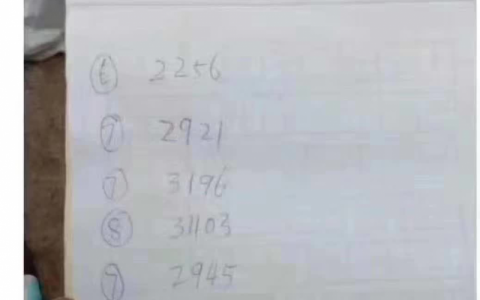 ⑥ 2256
⑦ 2921
⑦ 3196
⑧ 3403
⑨ 2945